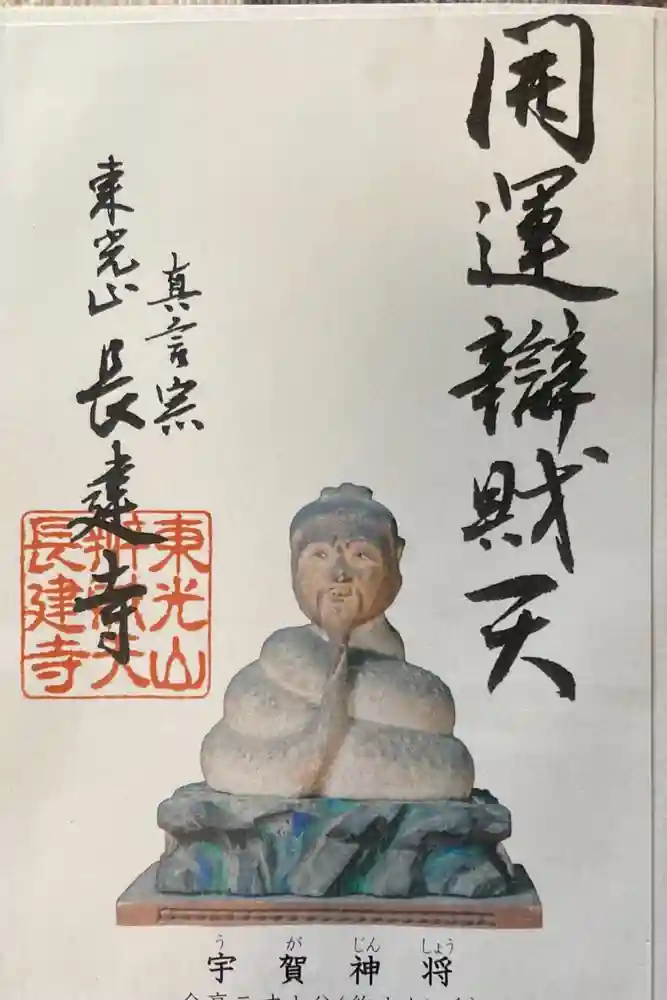 開運辯財天
真言宗
東光山 長建寺
東光山
辨財天
長建寺
う が じん しょう
宇賀神将